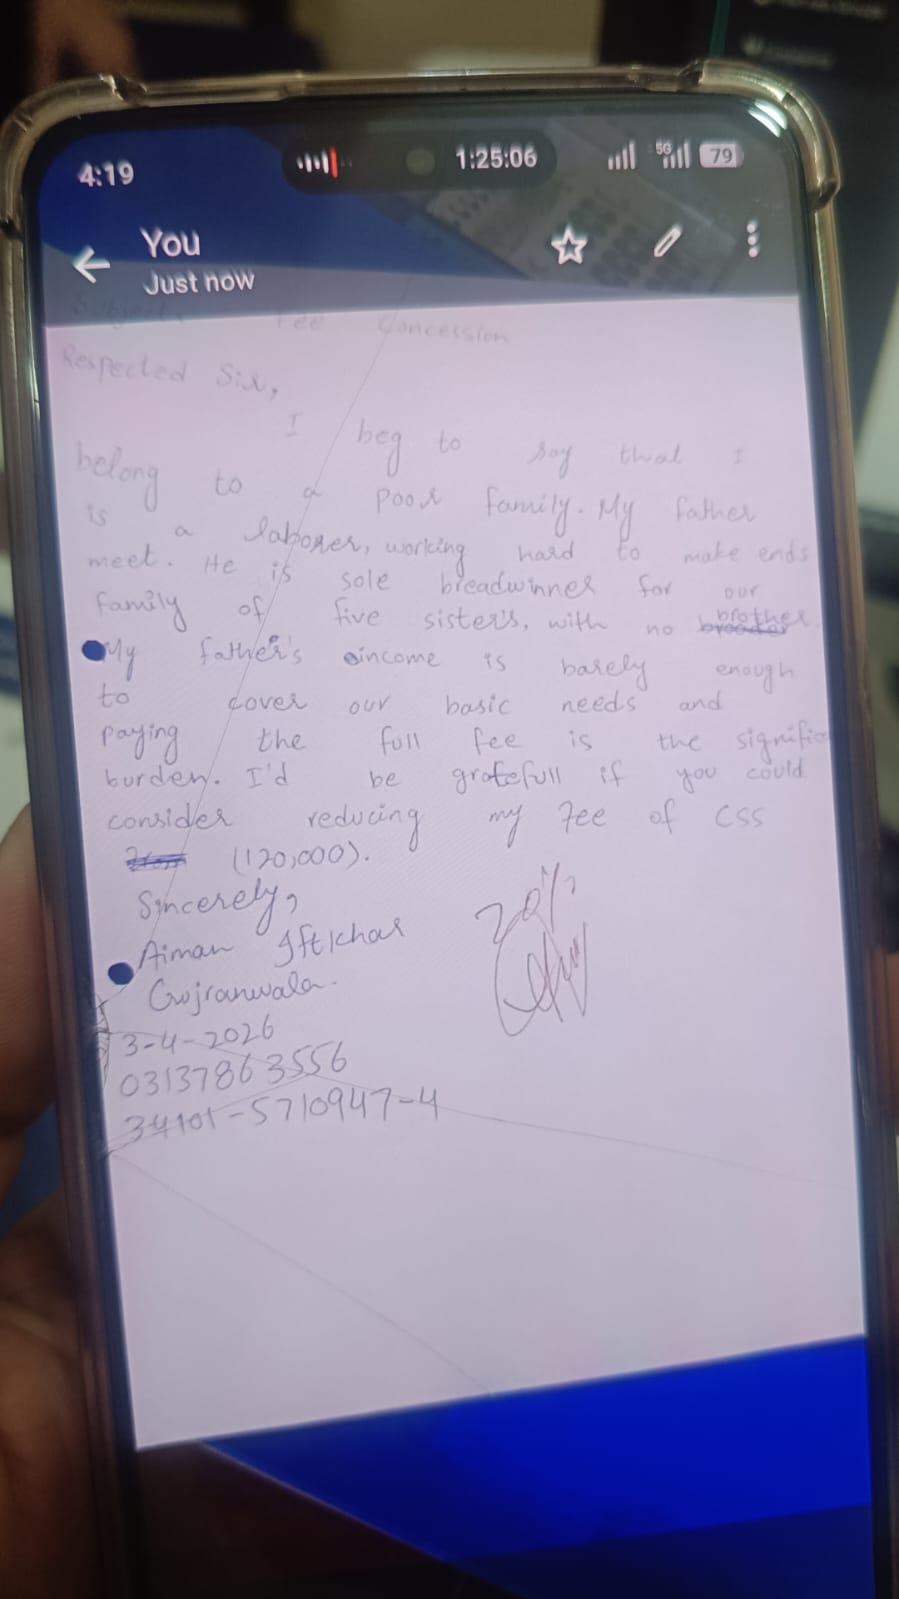 4:19 1:25:06 5G 79
You
Just now
Subject: Fee Concession
Respected Sir,
I beg to say that I
belong to a poor family. My father
is a laborer, working hard to make ends
meet. He is sole breadwinner for our
family of five sister's, with no brother.
My father's income is barely enough
to cover our basic needs and
paying the full fee is the signific
burden. I'd be gratefull if you could
consider reducing my Fee of CSS
(120,000).
Sincerely,
20%
Aiman Iftikhar
Gujranwala.
3-4-2026
03137863556
34101-5710947-4